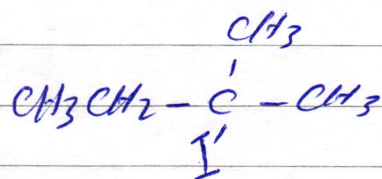 CH3
CH3CH2-C-CH3
I